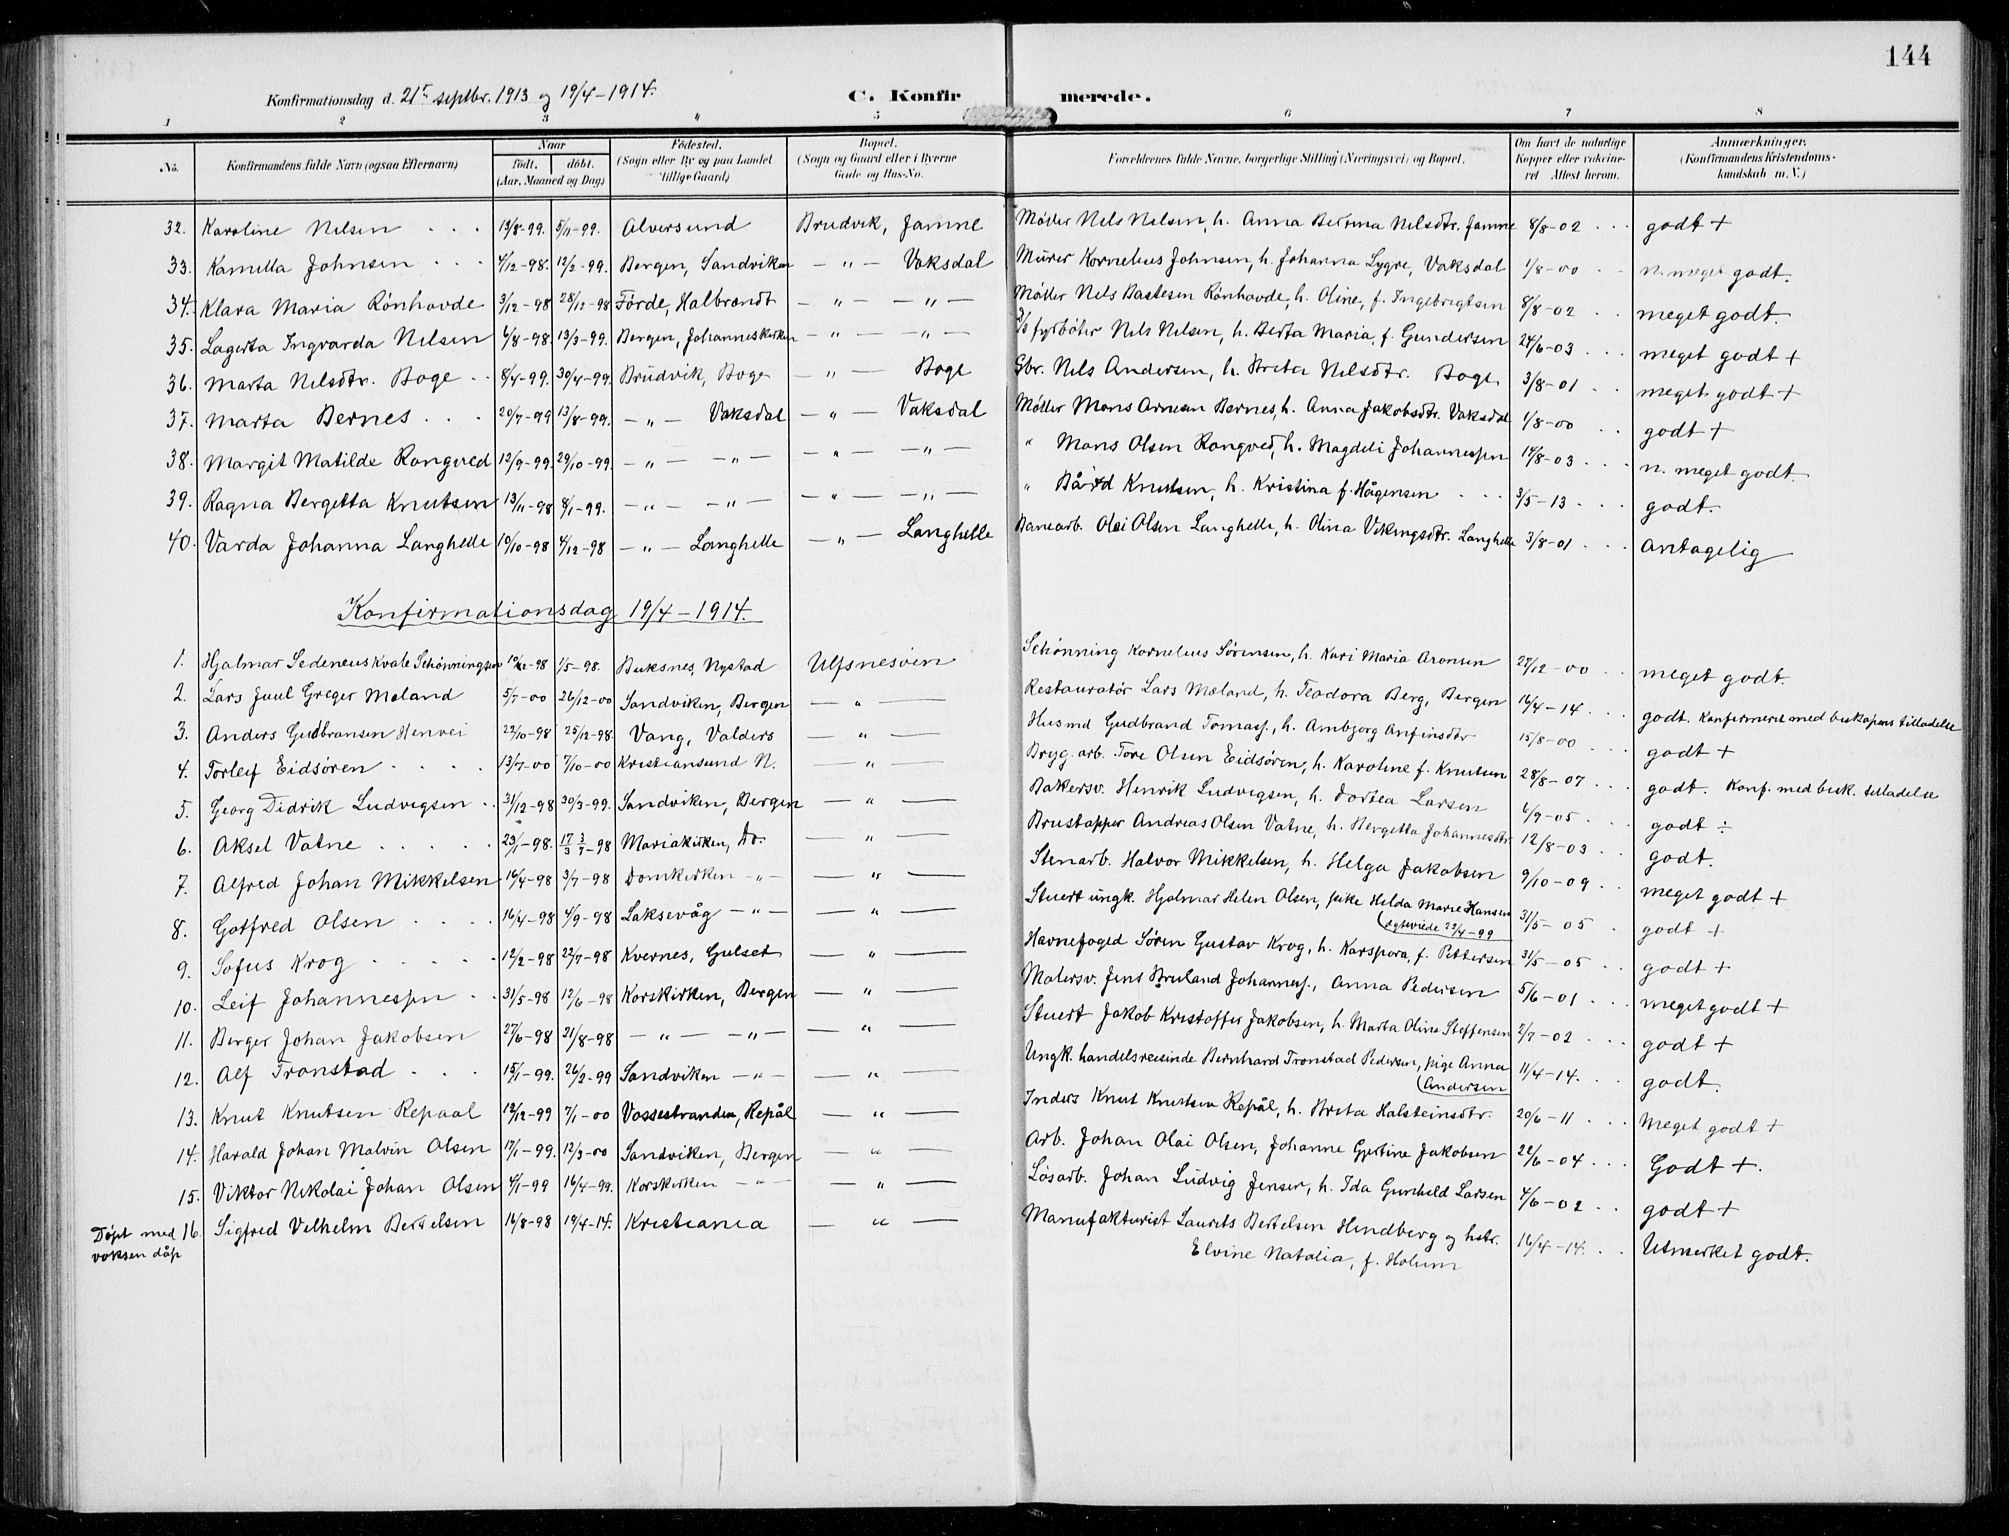 144
Konfirmationsdag d. 21de septbr. 1913 og 19/4-1914.
C. Konfirmerede.
1 2 3 " 5 6 7 8
No. Konfirmandens fulde Navn (ogsaa Efternavn) Naar født. døbt. (Aar, Maaned og Dag) Fødested. (Sogn eller By og paa Landet tillige Gaard) Bopæl. (Sogn og Gaard eller i Byerne Gade og Hus-No. Forældrenes fulde Navne, borgerlige Stilling (Næringsvei) og Bopæl. Om havt de naturlige Kopper eller vaccineret Attest herom. Anmærkninger. (Konfirmandens Kristendomskundskab m. V.)
32. Karoline Nilsen 13/8-99. 5/11-99. Alversund Brudvik, Jamne Møller Nels Nilsen, h. Anna Bertina Nilsdtr. Jamne 8/8-02 godt +
33. Kamilla Johnsen 4/12-98. 12/2-99. Bergen, Sandviken - " - Vaksdal Murer Kornelius Johnsen, h. Johanna Lygre, Vaksdal 1/8-00 n. meget godt.
34. Klara Maria Rønhovde 3/12-98 28/12-98 Förde, Halbrendt - " - - " - Møller Nels Bastesen Rønhovde, h. Oline, f. Ingebrigtsen 8/8-02 meget godt.
35. Lagerta Ingvarda Nilsen 6/8-98. 13/3-99. Bergen, Johanneskirken - " - - " - fyrböter Nils Nilsen, h. Berta Maria, f. Gundersen 24/6-03 meget godt +
36. Marta Nilsdtr. Boge 8/4-99. 30/4-99. Brudvik, Boge - " - Boge Gbr. Nils Andersen, h. Brita Nilsdtr. Boge 3/8-01 meget godt +
37. Marta Bernes 20/7-99 13/8-99. - " - Vaksdal - " - Vaksdal Møller Mons Arnesen Bernes, h. Anna Jakobsdtr. Vaksdal 1/8-00 godt +
38. Margit Matilde Rongved 12/9-99. 29/10-99. - " - - " - - " - - " - " Mons Olsen Rongved, h. Magdeli Johannessen 14/8-03 n. meget godt.
39. Ragna Bergetta Knutsen 13/11-98 8/1-99. - " - - " - - " - - " - " Bård Knutsen, h. Kristina f. Hågensen 3/5-13 godt.
40. Varda Johanna Langhelle 10/10-98 4/12-98 - " - Langhelle - " - Langhelle Banearb. Olai Olsen Langhelle, h. Olina Vikingsdtr. Langhelle 3/8-01 Antagelig
Konfirmationsdag 19/4-1914.
1. Hjalmar Sedeneus Kvale Schønningsen 1/5-98. Buksnes, Nystad Ulfsnesöen Schønning Kornelius Sørensen, h. Kari Maria Aronsen 27/12-00 meget godt.
2. Lars Juul Greger Mæland 5/7-00 26/12-00 Sandviken, Bergen - " - Restauratør Lars Mæland, h. Teodora Berg, Bergen 16/4-14 godt. Konfirmeret med biskopens tilladelse
3. Anders Gudbransen Henvei 22/10-98 25/12-98. Vang, Valders - " - Husmd Gudbrand Tomass., h. Ambjørg Anfinsdtr 15/8-00 godt +
4. Torleif Eidsøren 13/7-00 7/10-00 Kristiansund N. - " - Bryg.arb. Tore Olsen Eidsøren, h. Karoline f. Knutsen 28/8-07 godt. Konf. med bisk. tilladelse
5. Georg Didrik Ludvigsen 31/12-98 30/3-99. Sandviken, Bergen - " - Bakersv. Henrik Ludvigsen, h. Dortea Larsen 6/9-05 godt ÷
6. Aksel Vatne 23/1-98. 17/3 3/7-98 Mariakirken, Do. " - Brustapper Andreas Olsen Vatne, h. Bergetta Johannesdtr 12/8-03 godt.
7. Alfred Johan Mikkelsen 16/4-98 3/7-98 Domkirken - " - - " - Stenarb. Halvor Mikkelsen, h. Helga Jakobsen 9/10-09 meget godt +
8. Gotfred Olsen 16/4-98 4/9-98 Laksevåg - " - - " - Stuert ungk. Hjalmar Helen Olsen, pike Helda Marie Hansen (egteviede 23/4-99 31/5-05 godt +
9. Sofus Krog 12/2-98 22/7-98 Kvernes, Gulset - " - Havnefoged Søren Gustav Krog, h. Karspora, f. Pettersen 31/5-05 godt +
10. Leif Johannessen 31/5-98 12/6-98 Korskirken, Bergen - " - Malersv. Jens Bruland Johanness., Anna Pedersen 5/6-01 meget godt +
11. Berger Johan Jakobsen 27/6-98 21/8-98 - " - - " - - " - Stuert Jakob Kristoffer Jakobsen, h. Marta Oline Steffensen 2/7-02 godt +
12. Alf Tronstad 15/1-99. 26/2-99 Sandviken - " - - " - Ungk. handelsreisende Bernhard Tronstad Pedersen, pige Anna (Andersen 11/4-14. godt.
13. Knut Knutsen Repaal 12/12-99 7/1-00 Vossestranden, Repål - " - Inders Knut Knutsen Repål, h. Brita Halsteinsdtr. 20/6-11 Meget godt +
14. Harald Johan Malvin Olsen 17/1-99. 12/3-00 Sandviken, Bergen - " - Arb. Johan Olai Olsen, Johanne Gjertine Jakobsen 22/6-04 Godt +.
15. Viktor Nikolai Johan Olsen 4/1-99 16/4-99. Korskirken - " - - " - Løsarb. Johan Ludvig Jenser, h. Ida Gunhild Larsen 4/6-02 godt +
Döpt med voksen dåp 16. Sigfred Vilhelm Bertelsen 16/8-98 19/4-14. Kristiania - " - Manufakturist Laurits Bertelsen Hindberg og hstr. 16/4-14. Utmerket godt.
Elvine Natalia, f. Holum